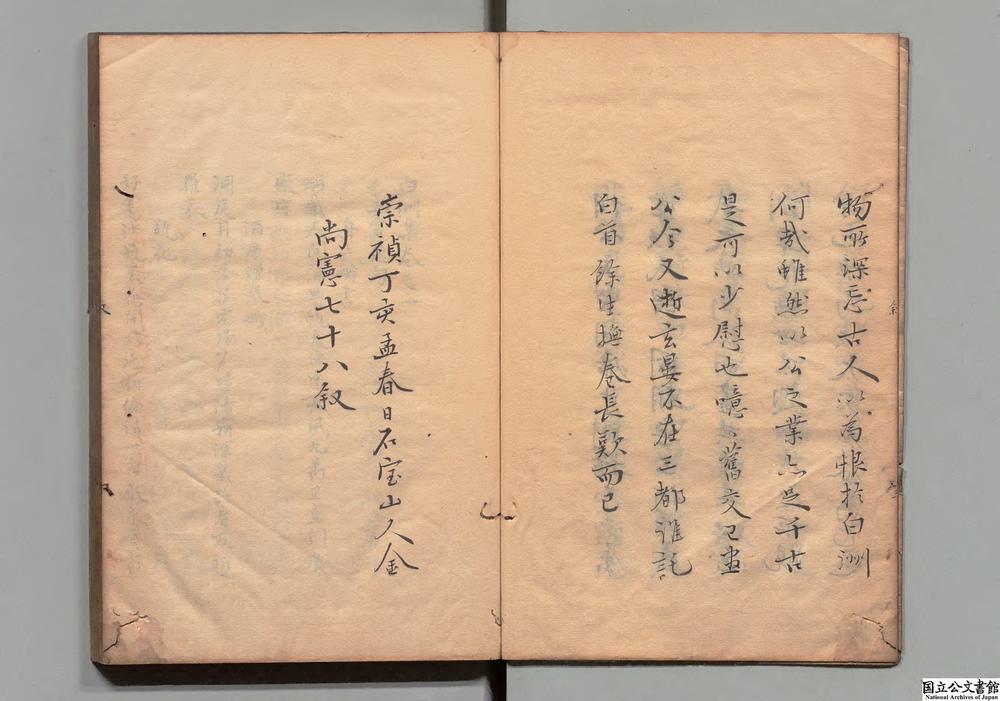 物所深忌古人以為恨於白洲
何哉雖然以公之業亦足千古
是可以少慰也噫々舊交已盡
公今又逝玄晏不在三都誰託
白首餘生撫卷長歎而已
崇禎丁亥孟春日石宝山人金
尚憲七十八叙
国立公文書館
National Archives of Japan